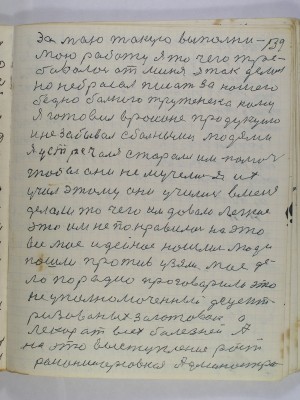 За мою такую выполни- 139
мою работу я то чего тре-
бовалось от меня я так делал
но не бросал писат за нашего
бедно больного труженика кому
Я готовил в врионе продукцию
и не забывал с больными людями
Я устречался старался им помоч
чтобы они не мучились Я их
учил этому они учились в меня
делали то чего им давало легкие
это им не понравилось на это
все мое идейное нашли люди
пошли против узяли мое де-
ло по радио проговорили это
не уполномоченный децент-
ризованых заготовок а
лекар от всех болезней А
на это выступление райт
администра